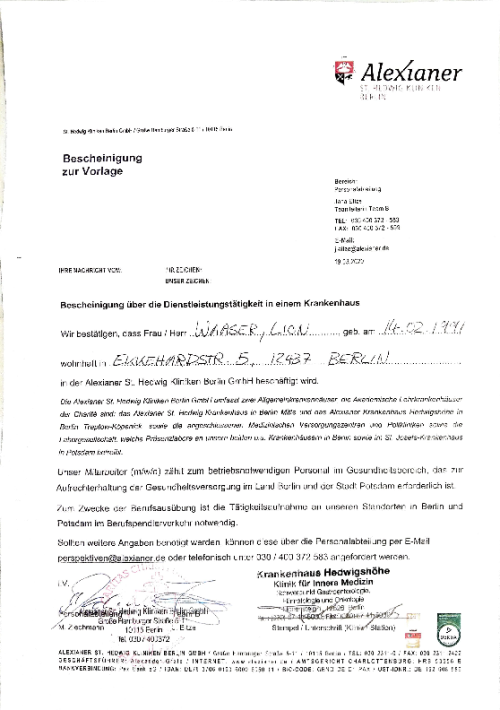 Alexianer
ST. HEDWIG KLINIKEN
BERLIN
St. Hedwig Kliniken Berlin GmbH / Große Hamburger Straße 5-11 / 10115 Berlin
Bescheinigung
zur Vorlage
Bereich:
Personalabteilung
Teamleiterin Team B
TEL: 030 400 372 - 583
FAX: 030 400 372 - 589
E-Mail:
19.03.2020
IHRE NACHRICHT VOM:
IHR ZEICHEN:
UNSER ZEICHEN:
Bescheinigung über die Dienstleistungstätigkeit in einem Krankenhaus
Wir bestätigen, dass Frau / Herr WAASER, LION geb. am 14.02.1991
wohnhaft in EKKEHARDSTR. 5, 12437 BERLIN
in der Alexianer St. Hedwig Kliniken Berlin GmbH beschäftigt wird.
Die Alexianer St. Hedwig Kliniken Berlin GmbH umfasst zwei Allgemeinkrankenhäuser, die Akademische Lehrkrankenhäuser
der Charité sind: das Alexianer St. Hedwig Krankenhaus in Berlin Mitte und das Alexianer Krankenhaus Hedwigshöhe in
Berlin Treptow-Köpenick sowie die angeschlossenen Medizinischen Versorgungszentren und Polikliniken sowie die
Laborgesellschaft, welche Präsenzlabore an unseren beiden o.g. Krankenhäusern in Berlin sowie im St. Josefs-Krankenhaus
in Potsdam betreibt.
Unser Mitarbeiter (m/w/d) zählt zum betriebsnotwendigen Personal im Gesundheitsbereich, das zur
Aufrechterhaltung der Gesundheitsversorgung im Land Berlin und der Stadt Potsdam erforderlich ist.
Zum Zwecke der Berufsausübung ist die Tätigkeitsaufnahme an unseren Standorten in Berlin und
Potsdam im Berufspendlerverkehr notwendig.
Sollten weitere Angaben benötigt werden, können diese über die Personalabteilung per E-Mail
perspektiven@alexianer.de oder telefonisch unter 030 / 400 372 583 angefordert werden.
i.V.
Alexianer St. Hedwig Kliniken Berlin GmbH
Personalabteilung
Große Hamburger Straße 5-11
10115 Berlin
Tel. 030/ 400372
Krankenhaus Hedwigshöhe
Klinik für Innere Medizin
Schwerpunkt Gastroenterologie,
Hämatologie und Onkologie
Stempel / Unterschrift (Klinik / Station)
ALEXIANER ST. HEDWIG KLINIKEN BERLIN GMBH / Große Hamburger Straße 5-11 / 10115 Berlin